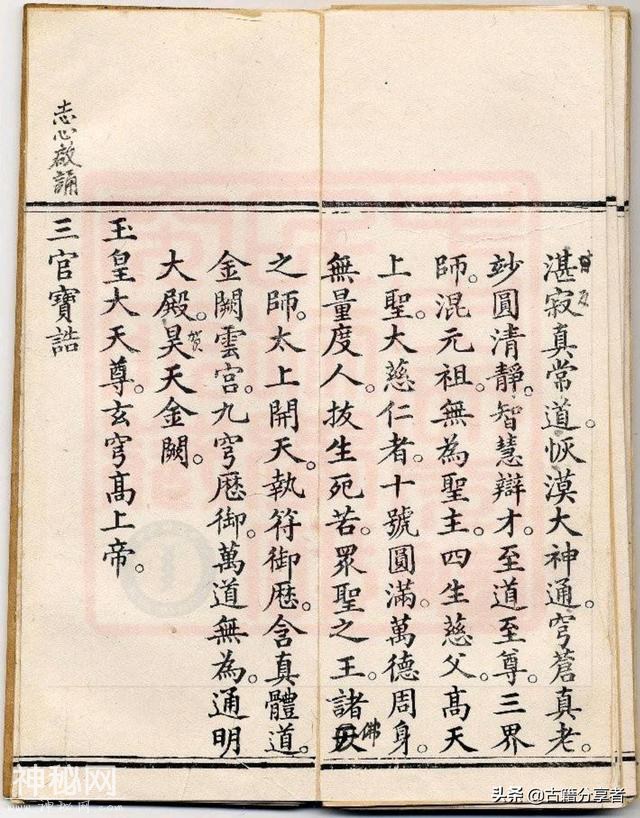 湛寂真常道。恢漠大神通。穹蒼真老。
竗圓清靜。智慧辯才。至道至尊。三界
師。混元祖。無為聖主。四生慈父。高天
上聖。大慈仁者。十號圓滿。萬德周身。
無量度人。拔生死苦。眾聖之王。諸佛
之師。太上開天。執符御厯。含真體道。
金闕雲宮。九穹厯御。萬道無為。通明
大殿。昊天金闕。
玉皇大天尊。玄穹高上帝。
志心啟誦
三官寶誥
神秘网
头条 @古籍分享者